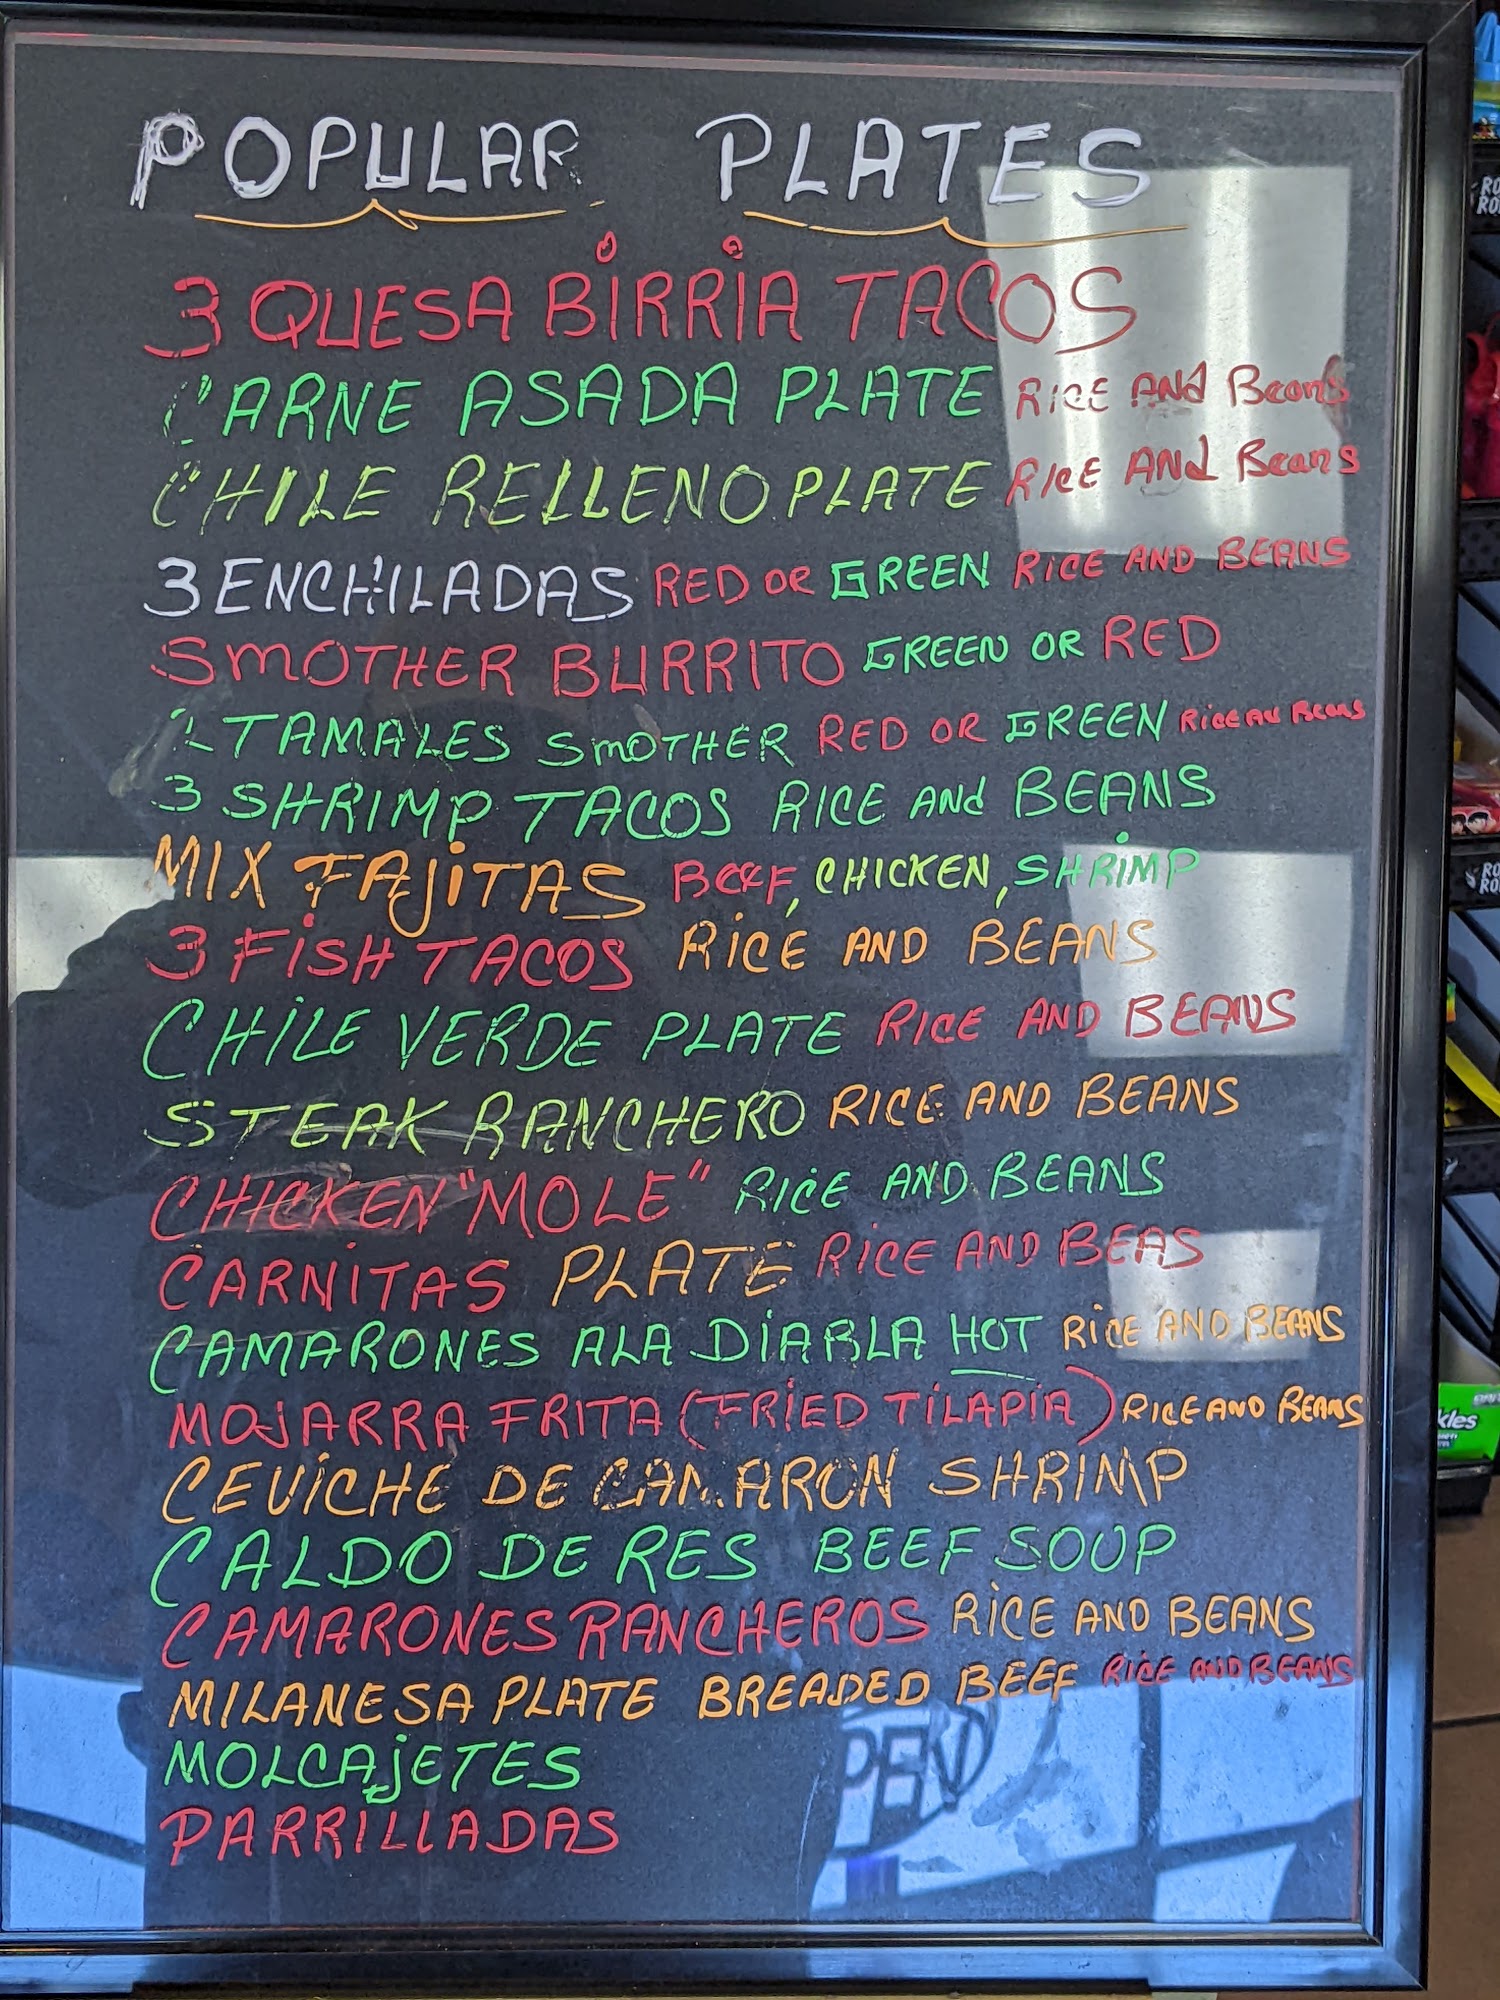 POPULAR PLATES
3 QUESA BIRRIA TACOS
CARNE ASADA PLATE RICE AND Beans
CHILE RELLENO PLATE RICE AND Beans
3 ENCHILADAS RED OR GREEN RICE AND BEANS
SMOTHER BURRITO GREEN OR RED
TAMALES SMOTHER RED OR GREEN RICE AND Beans
3 SHRIMP TACOS RICE AND BEANS
MIX FAJITAS BEEF, CHICKEN, SHRIMP
3 FISH TACOS RICE AND BEANS
CHILE VERDE PLATE RICE AND BEANS
STEAK RANCHERO RICE AND BEANS
CHICKEN "MOLE" RICE AND BEANS
CARNITAS PLATE RICE AND BEAS
CAMARONES ALA DIABLA HOT RICE AND BEANS
MOJARRA FRITA (FRIED TILAPIA) RICE AND BEANS
CEVICHE DE CAMARON SHRIMP
CALDO DE RES BEEF SOUP
CAMARONES RANCHEROS RICE AND BEANS
MILANESA PLATE BREADED BEEF RICE AND BEANS
MOLCAJETES
PARRILLADAS